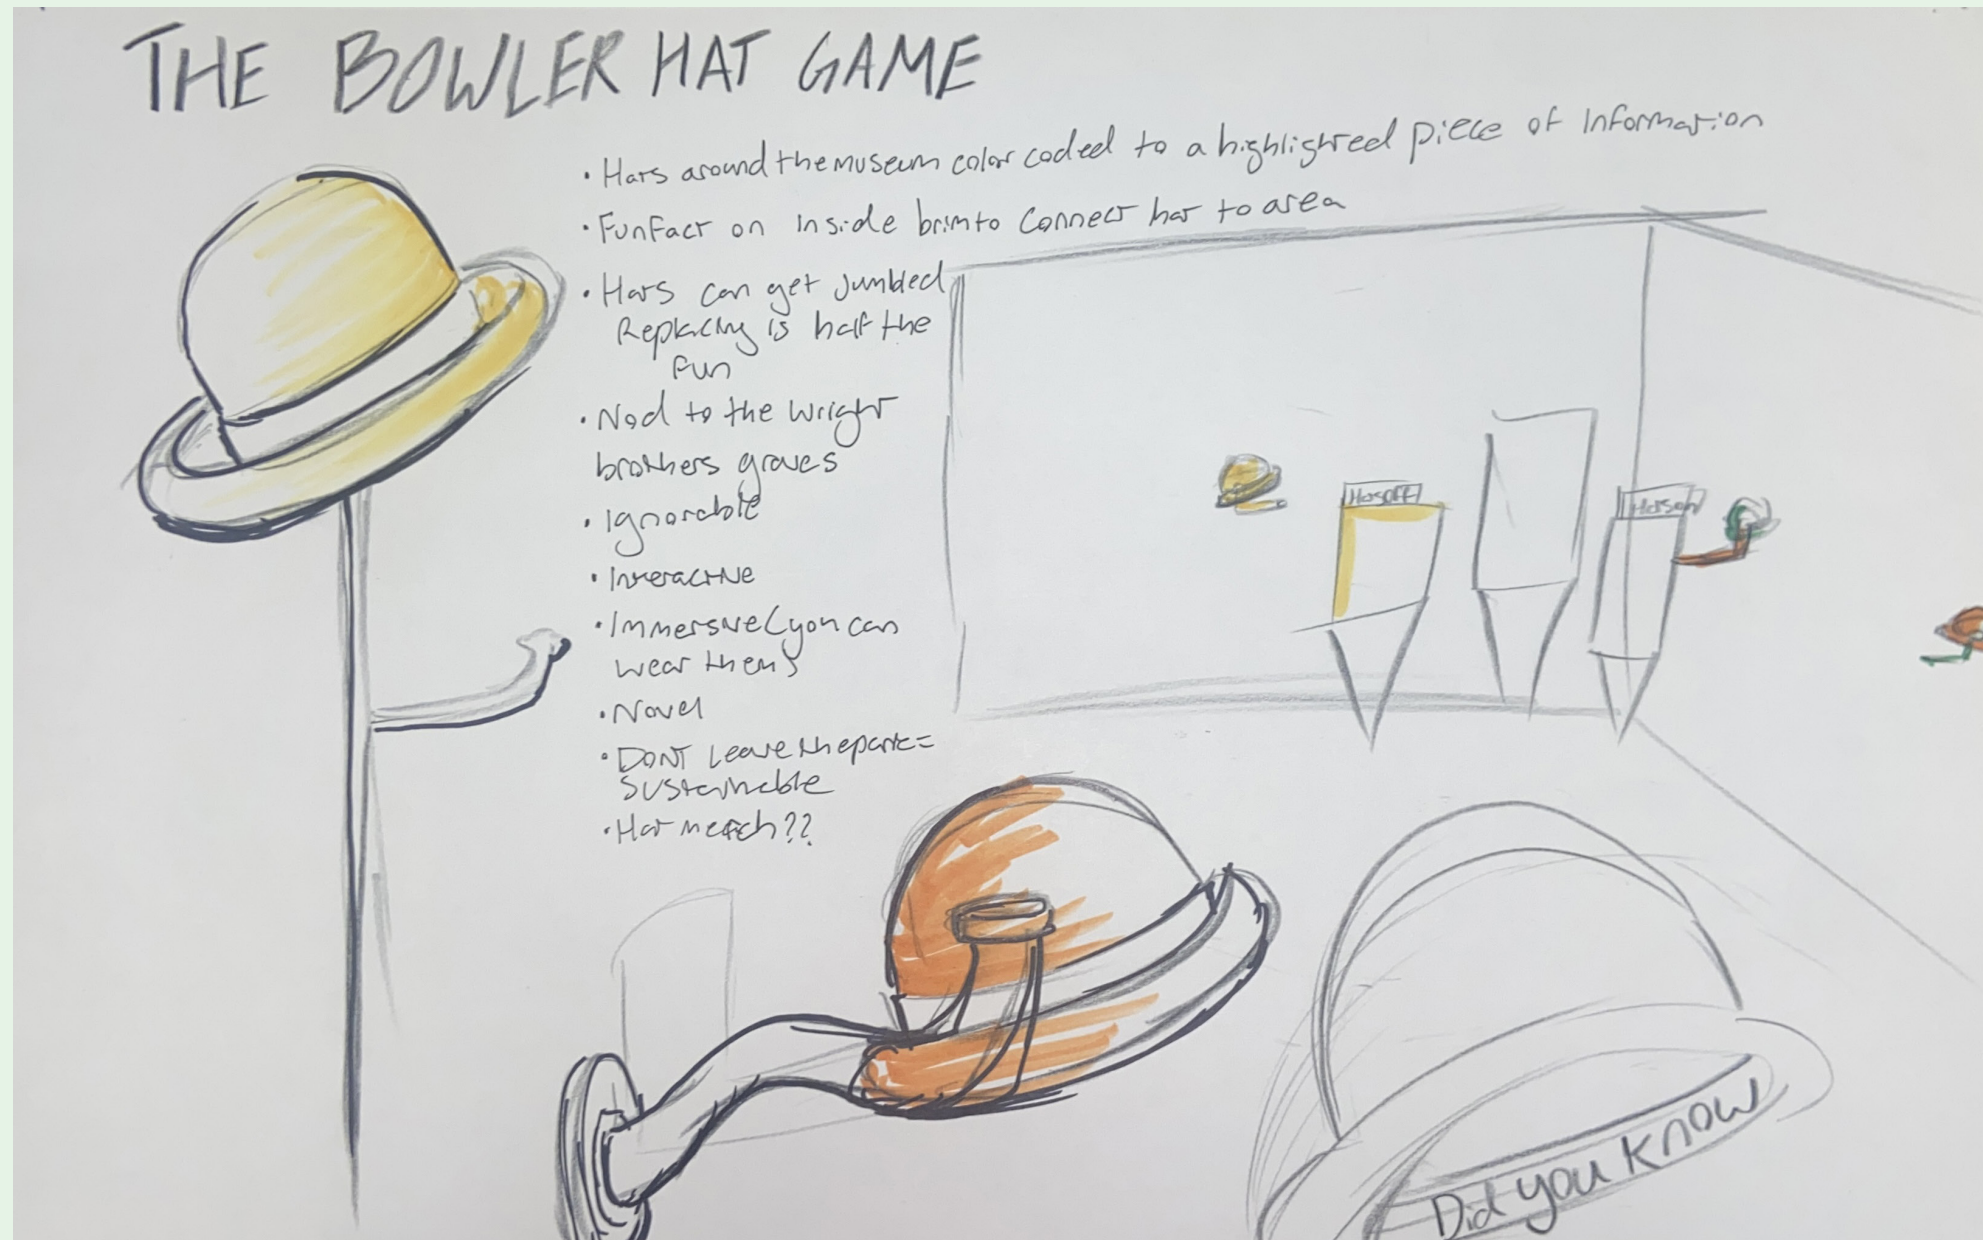 THE BOWLER HAT GAME
• Hats around the museum color coded to a highlighted piece of Information
• Fun Fact on inside brim to connect hat to area
• Hats can get Jumbled
Replacing is half the
fun
• Nod to the Wright
brothers graves
• Ignorable
• Interactive
• Immersive (you can
wear them)
• Novel
• DONT Leave the park =
Sustainable
• Hat merch??
Hats off
Hats on
Did you know